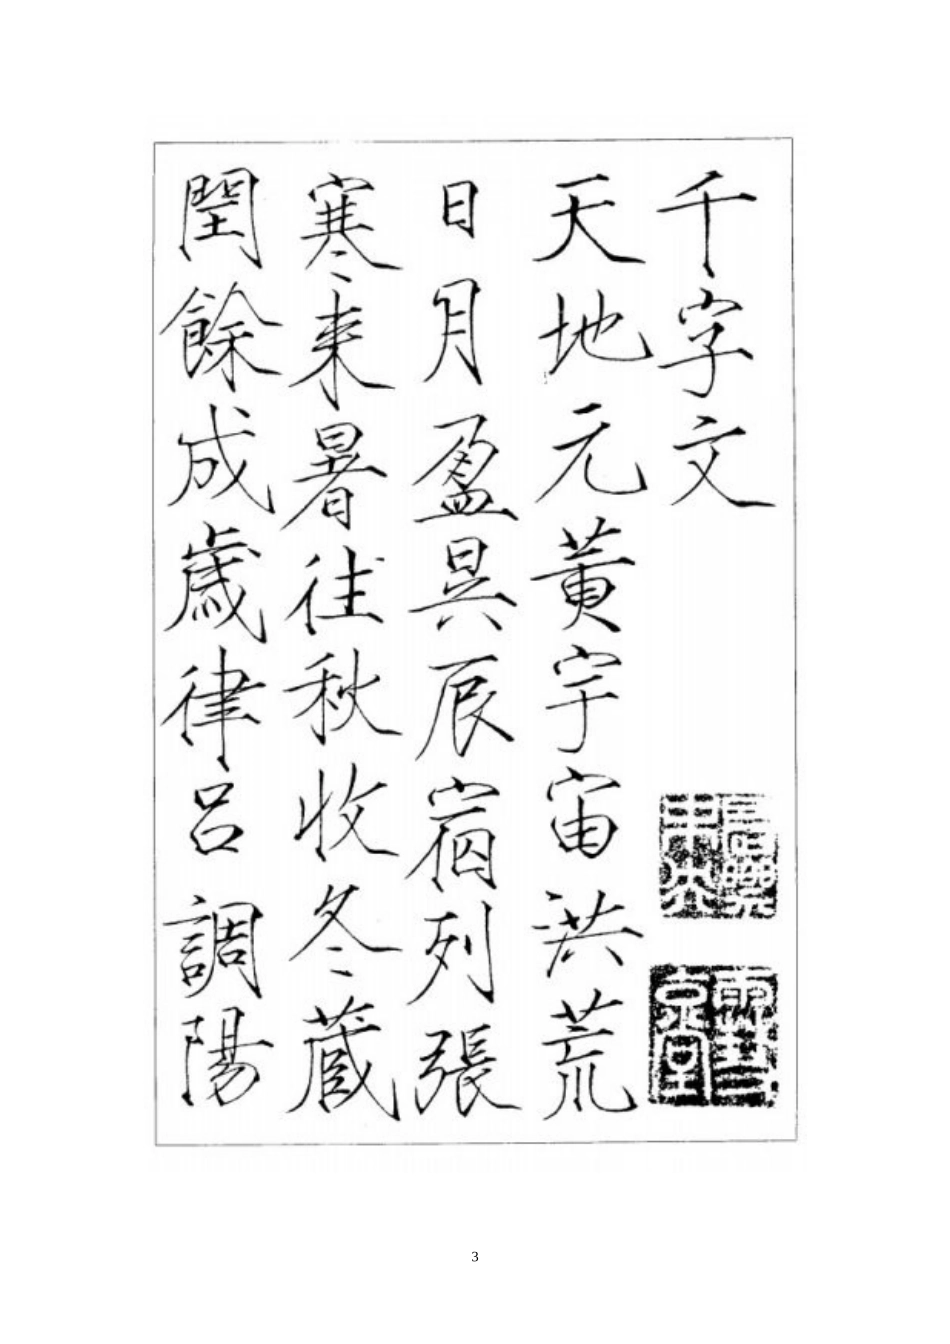 千字文
天地元黄宇宙洪荒
日月盈昃辰宿列張
寒来暑往秋收冬蔵
閏餘成歳律呂調陽
3